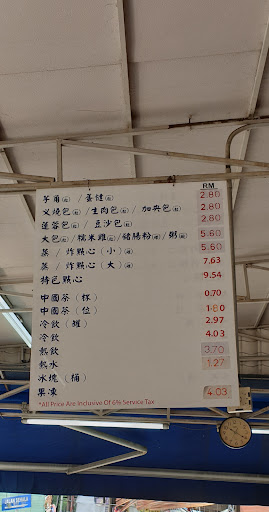 RM
芋角 / 蛋撻 2.80
叉燒包 / 生肉包 / 加央包 2.80
蓮蓉包 / 豆沙包 2.80
大包 / 糯米雞 / 豬腸粉 / 粥 5.60
蒸 / 炸點心 (小) 5.60
蒸 / 炸點心 (大) 7.63
特色點心 9.54
中國茶 (杯) 0.70
中國茶 (位) 1.80
冷飲 (罐) 2.97
冷飲 4.03
熱飲 3.70
熱水 1.27
冰塊 (桶)
果凍 4.03
*All Price Are Inclusive Of 6% Service Tax